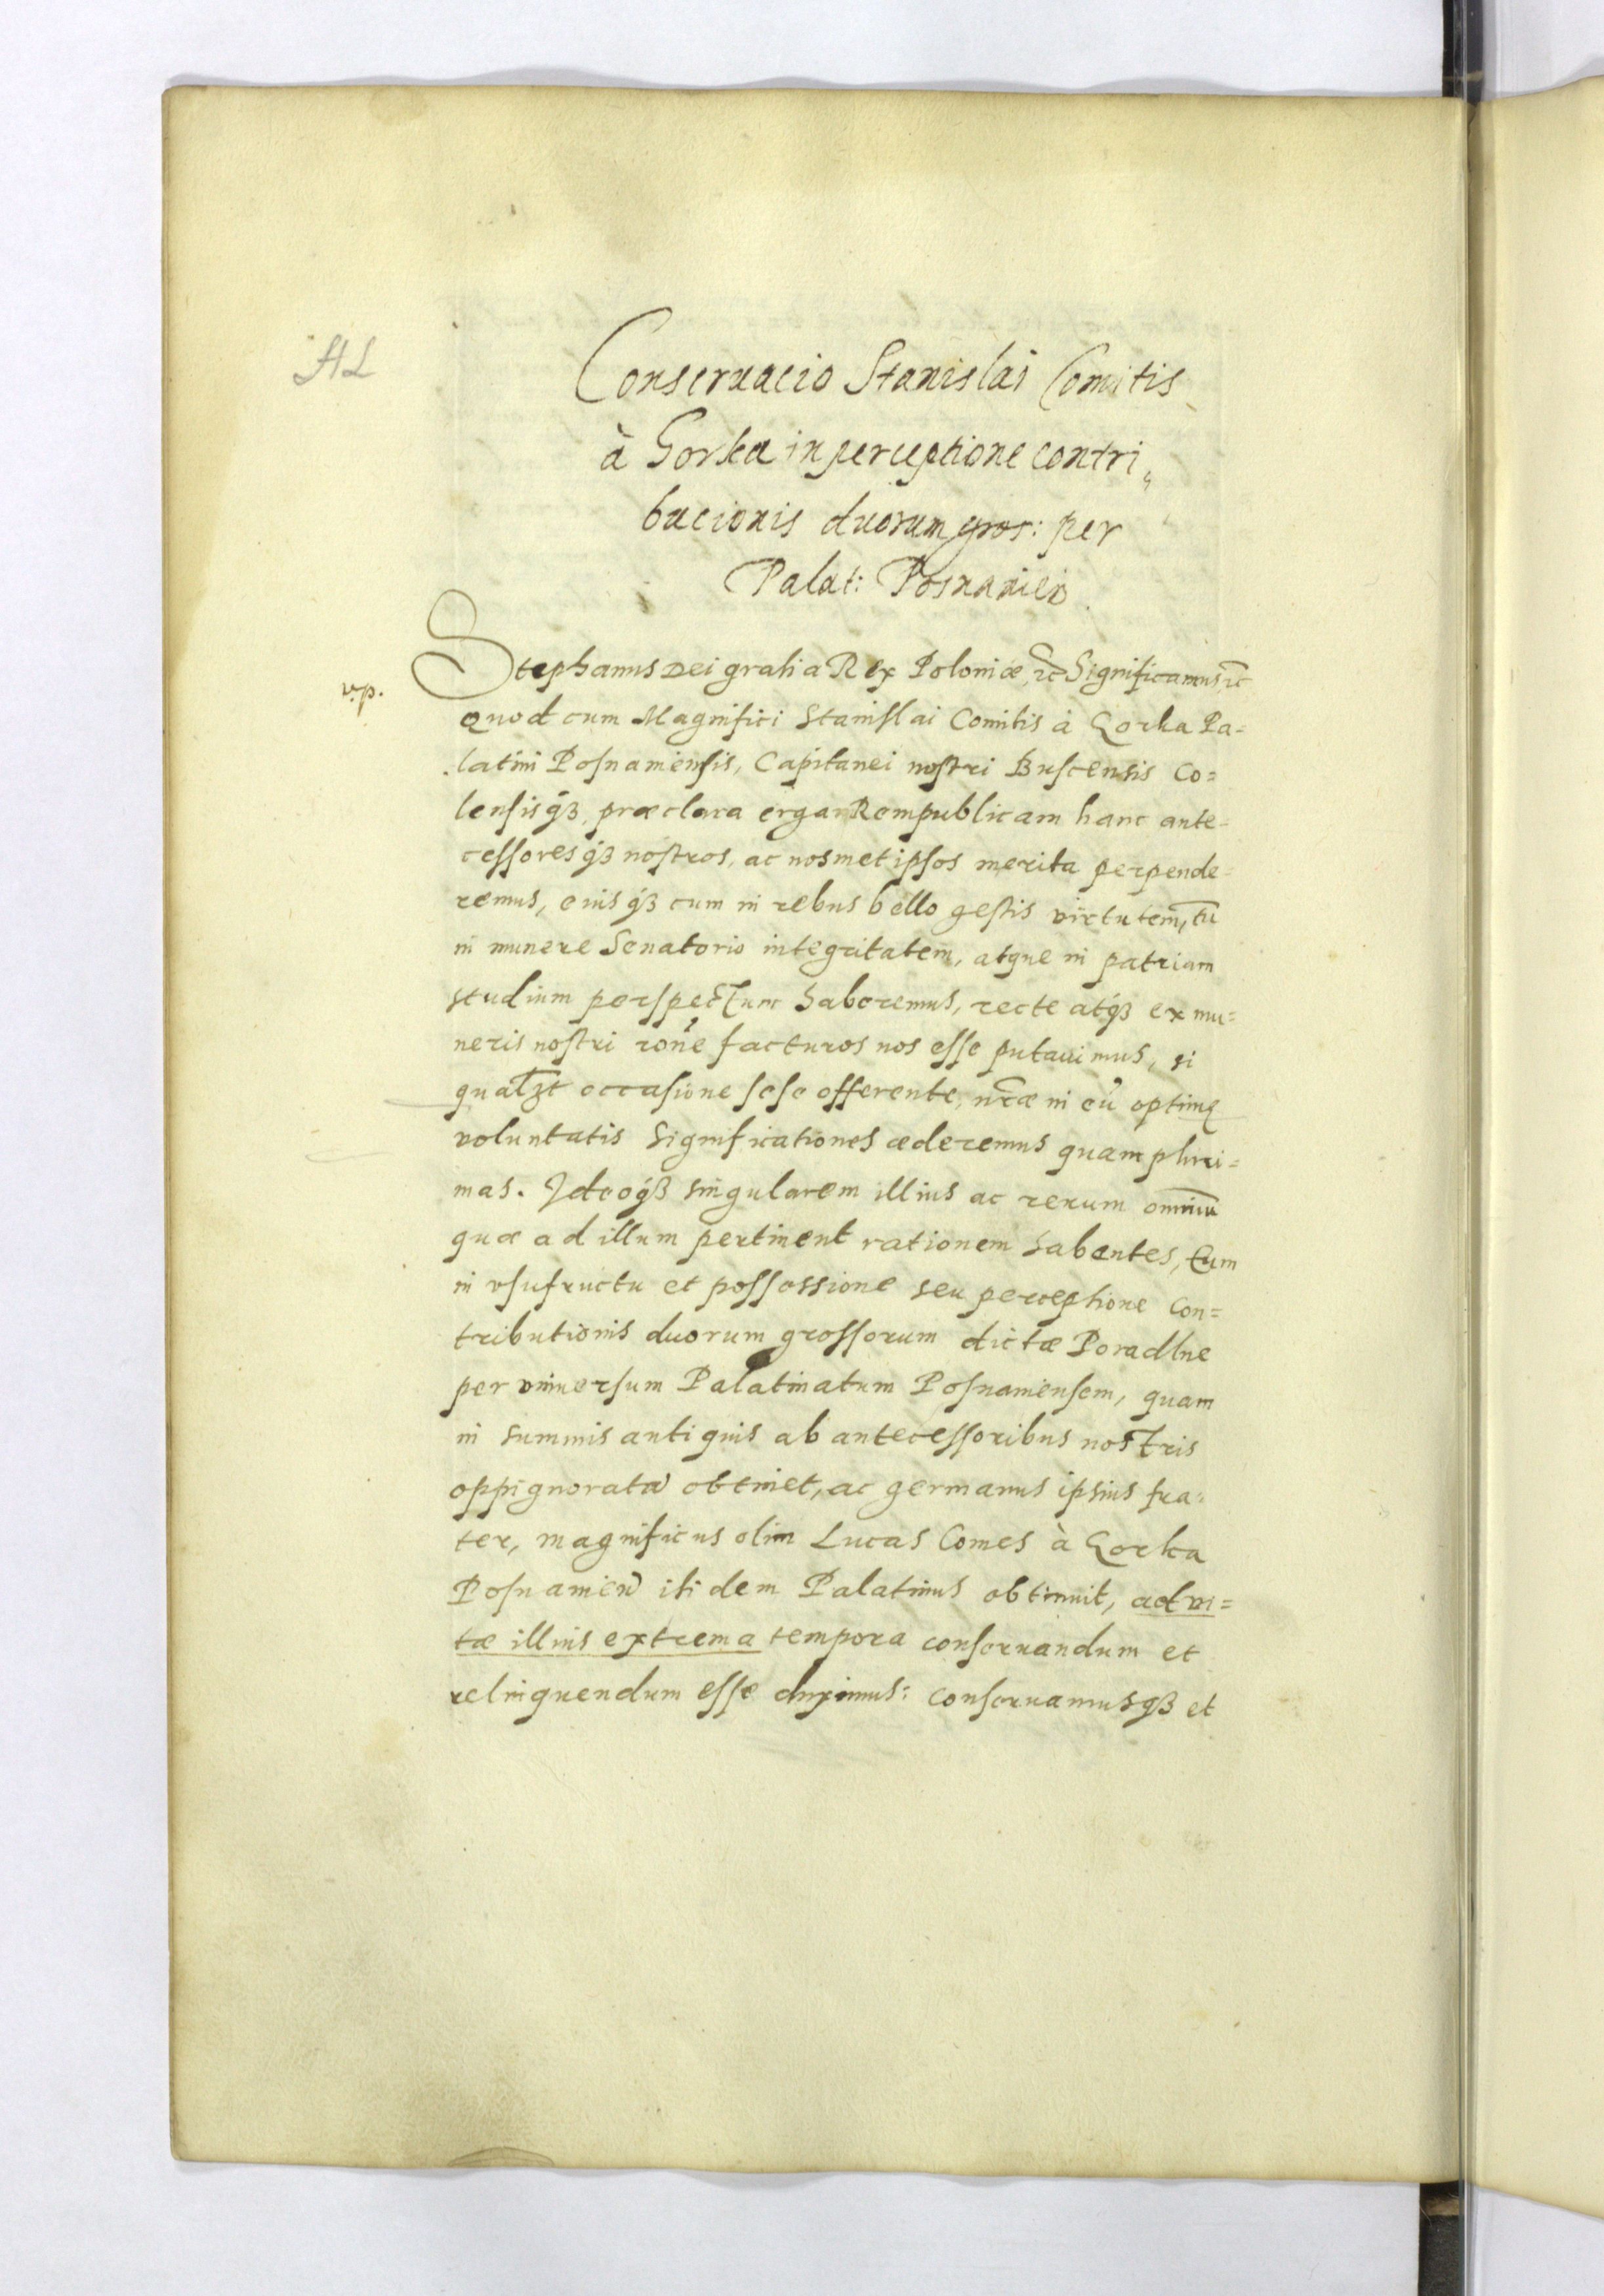 AL
Conseruacio Stanislai Comitis
à Gorka in perceptione contri„
bucionis duorum gros: per
Palat: Posnanien
v.p.
Stephanus Dei gratia Rex Poloniæ, etc Significamus etc
quod cum Magnifici Stanislai Comitis à Gorka Pa=
latini Posnaniensis, Capitanei nostri Buscensis Co=
lensisq3, præclara erga Rempublicam hanc ante-
cessoresq3 nostros, ac nosmet ipsos merita perpende=
remus, eiusq3 cum in rebus bello gestis virtutem, tū
in munere Senatorio integritatem, atque in patriam
studium perspectum haberemus, recte atq3 ex mu=
neris nostri rōne facturos nos esse putauimus, si
qual3t occasione sese offerente, nr̄æ in eū optimę
voluntatis significationes æderemus quam pluri=
mas. Ideoq3 singularem illius ac rerum omniū
quæ ad illum pertinent rationem habentes, Eum
in vsufructu et possessione seu perceptione con=
tributionis duorum grossorum dictæ Poradlne
per vniuersum Palatinatum Posnaniensem, quam
in summis antiquis ab antecessoribus nostris
oppignoratā obtinet, ac germanus ipsius fra=
ter, magnificus olim Lucas Comes à Gorka
Posnanien̄ itidem Palatinus obtinuit, ad vi=
tæ illius extrema tempora conseruandum et
relinquendum esse duximus: conseruamusq3 et